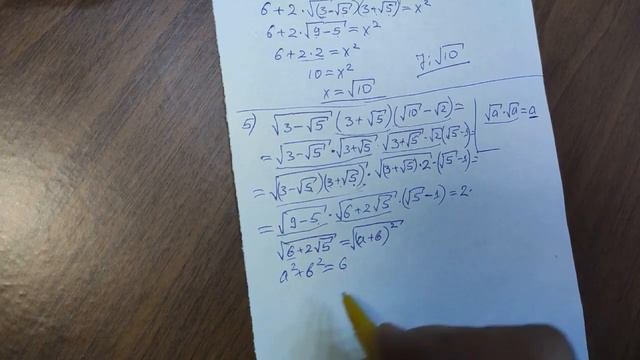 6+2·√(3-√5)(3+√5) = x²
6+2·√9-5 = x²
6+2·2 = x²
10 = x²
x = √10
J: √10
5) √3-√5 (3+√5)(√10-√2) =
= √3-√5 · √3+√5 · √3+√5 · √2(√5-1) =
= √(3-√5)(3+√5) · √(3+√5)·2 · (√5-1) =
= √9-5 · √6+2√5 · (√5-1) = 2·
√6+2√5 = √(a+b)²
a²+b² = 6
√a·√a = a